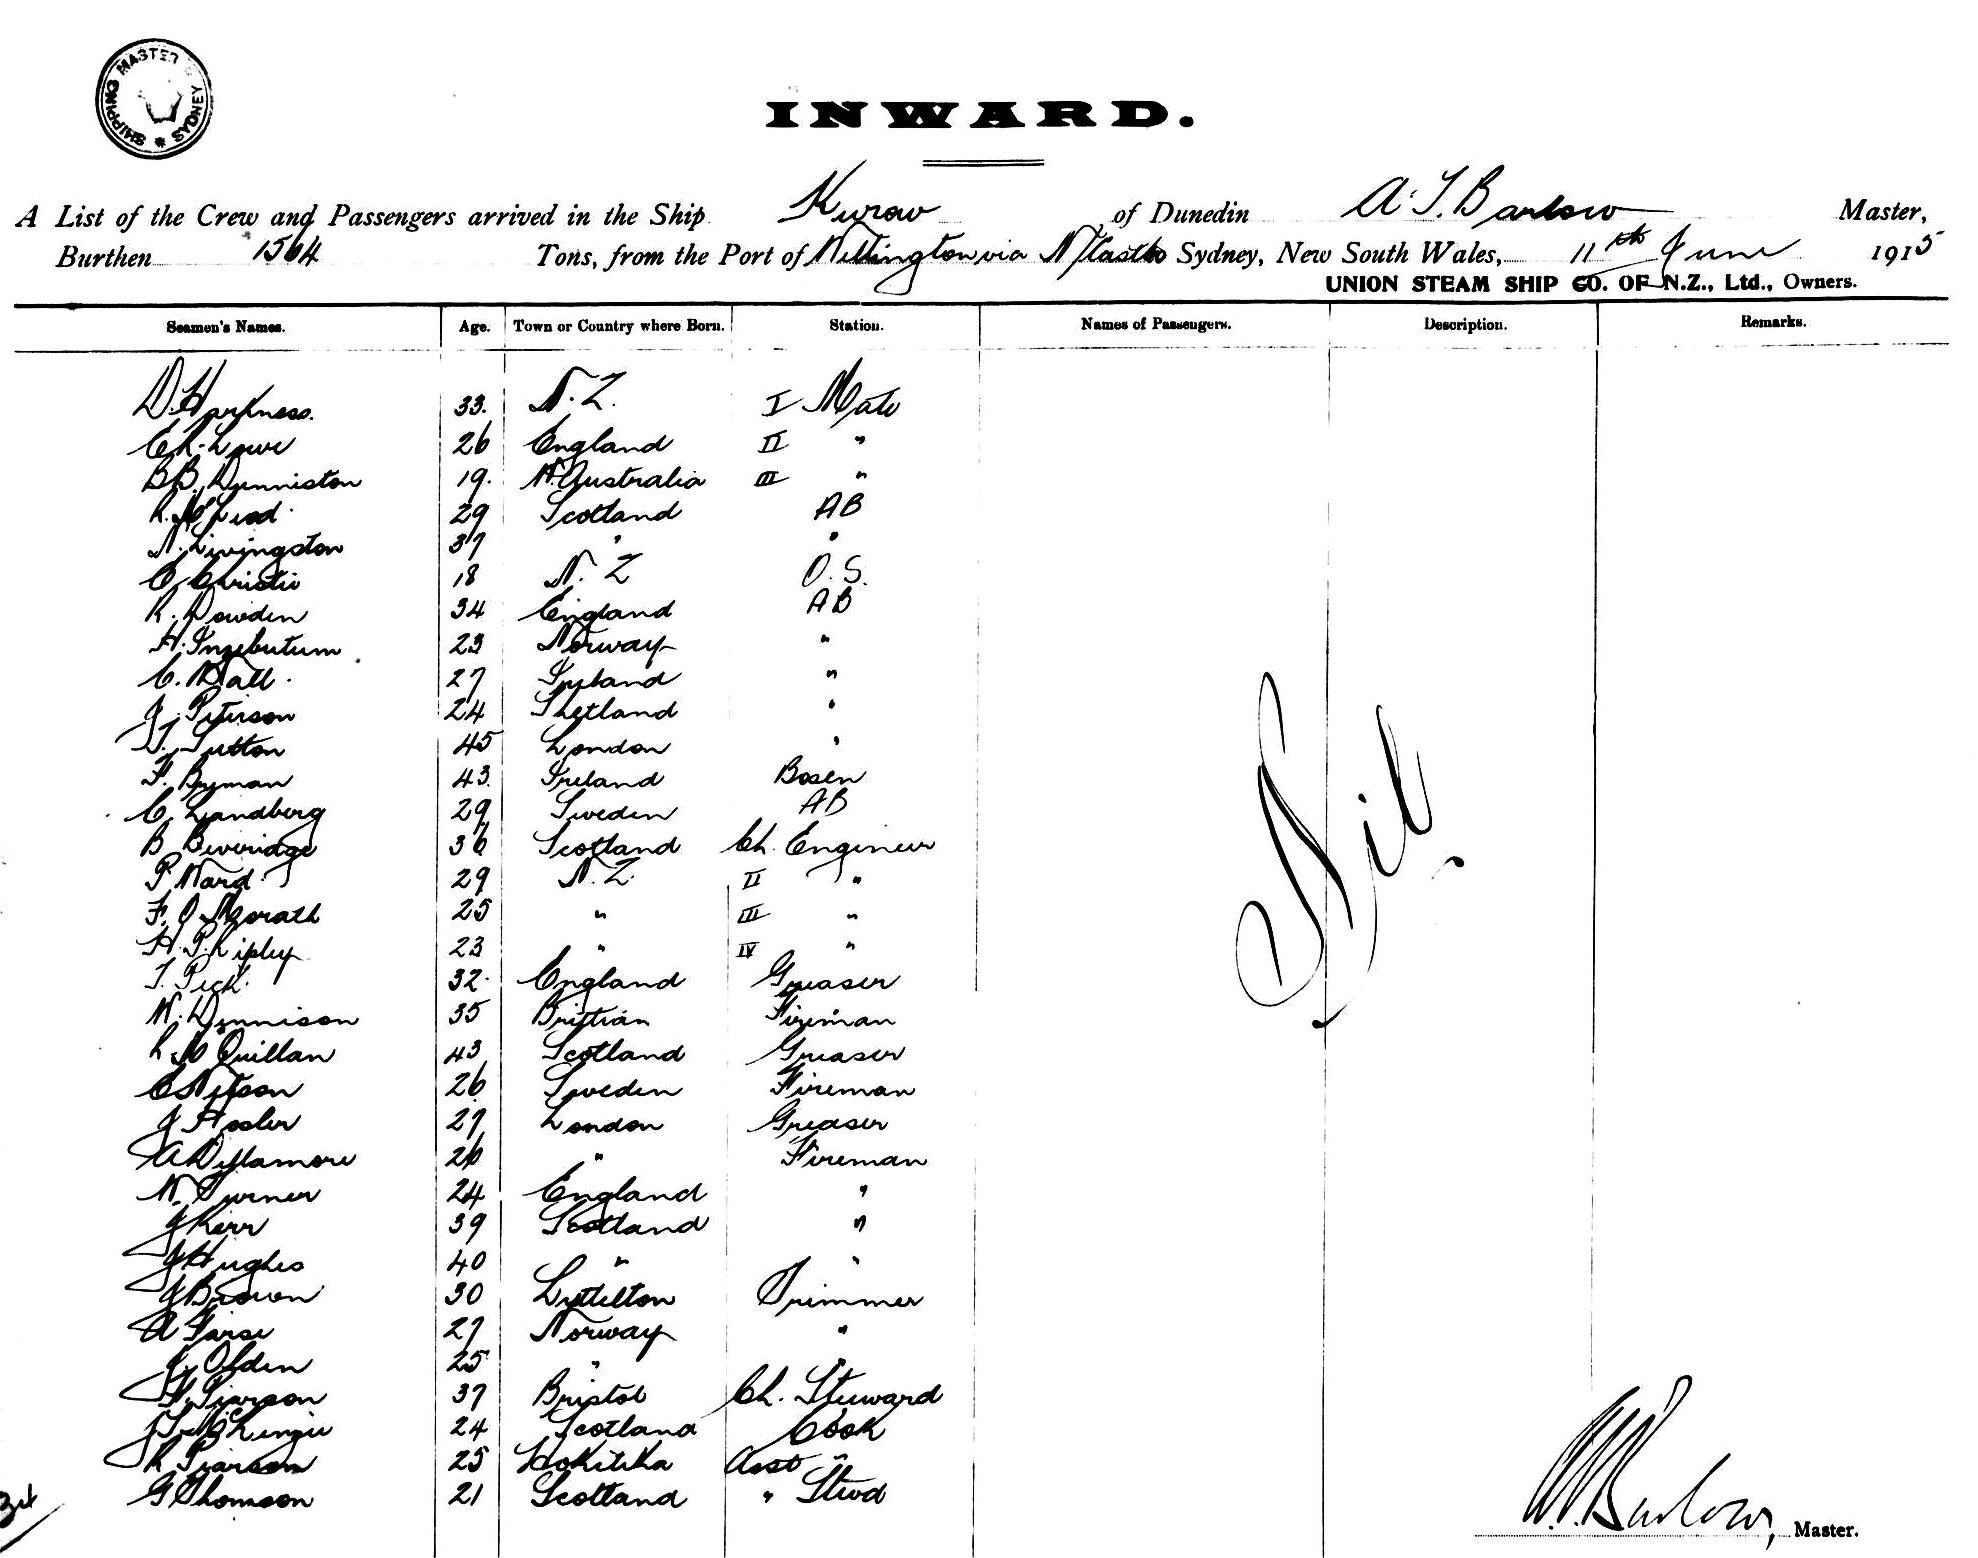 SHIPPING MASTER * SYDNEY
INWARD.
A List of the Crew and Passengers arrived in the Ship Kurow of Dunedin A. T. Barlow Master,
Burthen 1584 Tons, from the Port of Wellington via N/Castle Sydney, New South Wales, 11th June 1915
UNION STEAM SHIP CO. OF N.Z., Ltd., Owners.
Seamen's Names. Age. Town or Country where Born. Station. Names of Passengers. Description. Remarks.
D. Harkness. 33. N.Z. I Mate
Lowe 26 England II "
B.B. Dunniston 19. Australia III "
R. McLeod 29 Scotland AB
N. Livingston 37 " "
C. Christie 18 N.Z O.S.
R. Dowden 34 England AB
H. Ingebutum 23 Norway "
C. Wall. 27 "
J. Peterson 24 Shetland "
T. Sutton 45 London "
F. Byman 43. Ireland Bosen
C. Landberg 29 Sweden AB
B Beveridge 36 Scotland Ch. Engineer
P Ward 29 N.Z. II "
F. J. McGrath 25 " III "
H. P. Ripley 23 " IV "
T. Peck. 32. England Greaser
W. Dennison 35 Brittian Fireman
R McQuillan 43 Scotland Greaser
C Nelson 26 Sweden Fireman
J Hosler 27 London Greaser
A Dellamore 26 " Fireman
W. Turner 24 England "
J Kerr 39 Scotland "
J Hughes 40 " "
J Brown 30 Lyttelton Trimmer
A Farse 27 Norway "
J. Olden 25 " "
H. Pearson 37 Bristol Ch. Steward
McKenzie 24 Scotland Cook
R Pearson 25 Hokitika Asst "
G Thomson 21 Scotland " Stwd
Nil
Barlow, Master.